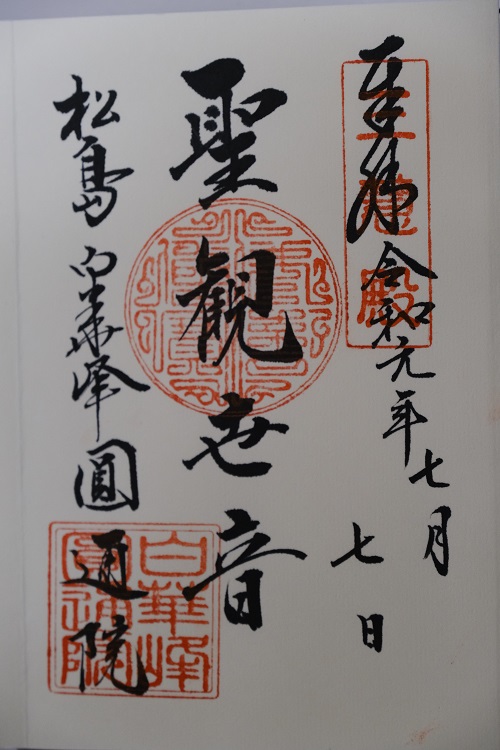 奉拝 令和元年七月
七日
聖観世音
松島 白華峰 圓通院
三慧殿
白華峰圓通院